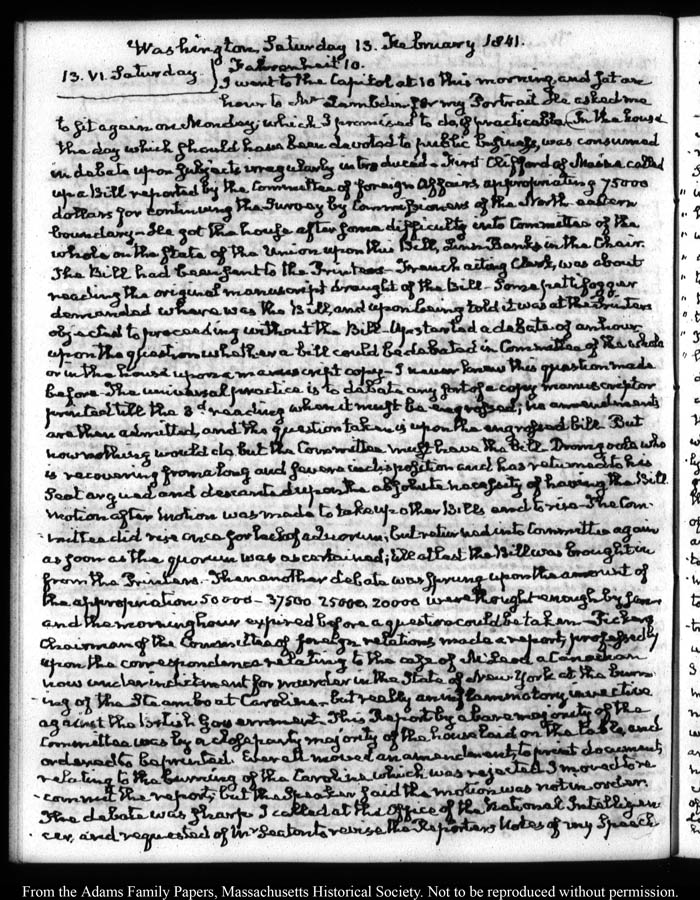 Washington, Saturday 13. February 1841.
13. VI. Saturday } Fahrenheit 10.
I went to the Capitol at 10 this morning, and sat an
hour to Mr Lambdin for my Portrait. He asked me
to sit again on Monday; which I promised to do, if practicable. In the house
the day which should have been devoted to public business, was consumed
in debate upon subjects irregularly introduced. First Clifford of Maine called
up a Bill reported by the Committee of foreign Affairs appropriating 75000
dollars for continuing the Survey by Commissioners of the North eastern
boundary. He got the house after some difficulty into Committee of the
whole on the State of the Union upon this Bill, Linn Banks in the Chair.
The Bill had been sent to the Printers. French acting Clerk, was about
reading the original manuscript draught of the Bill. Some pettifogger
demanded where was the Bill, and upon being told it was at the Printers
objected to proceeding without the Bill. Up started a debate of an hour
upon the question whether a bill could be debated in Committee of the whole
or in the house upon a manuscript copy. I never knew this question made
before. The universal practice is to debate any sort of a copy manuscript or
printed till the 3d reading when it must be engrossed; no amendments
are then admitted, and the question taken is upon the engrossed bill. But
now nothing would do, but the Committee must have the bill. Dromgoole who
is recovering from a long and severe indisposition and has returned to his
Seat argued and descanted upon the absolute necessity of having the Bill.
Motion after motion was made to take up other Bills and to rise. The Com-
mittee did rise once for lack of a Quorum; but returned into Committee again
as soon as the quorum was ascertained; till at last the Bill was brought in
from the Printers. Then another debate was sprung upon the amount of
the appropriation 50000 - 37500. 25000. 20000 were thought enough by some
and the morning hour expired before a question could be taken. Pickens
Chairman of the Committee of foreign relations, made a report, professedly
upon the correspondence relating to the case of McLeod a Canadian
now under indictment for murder in the State of New-York at the burn-
ing of the Steamboat Carolina. but really an inflammatory invective
against the British Government. This Report by a bare majority of the
Committee was by a close party majority of the house laid on the table, and
ordered to be printed. Everett moved an amendment, to print documents
relating to the burning of the Carolina which was rejected. I moved to re-
commit the report; but the Speaker said the motion was not in order.
The debate was sharp. I called at the Office of the National Intelligen-
cer, and requested of Mr Seaton to revise the Reporters Notes of my Speech
From the Adams Family Papers, Massachusetts Historical Society. Not to be reproduced without permission.